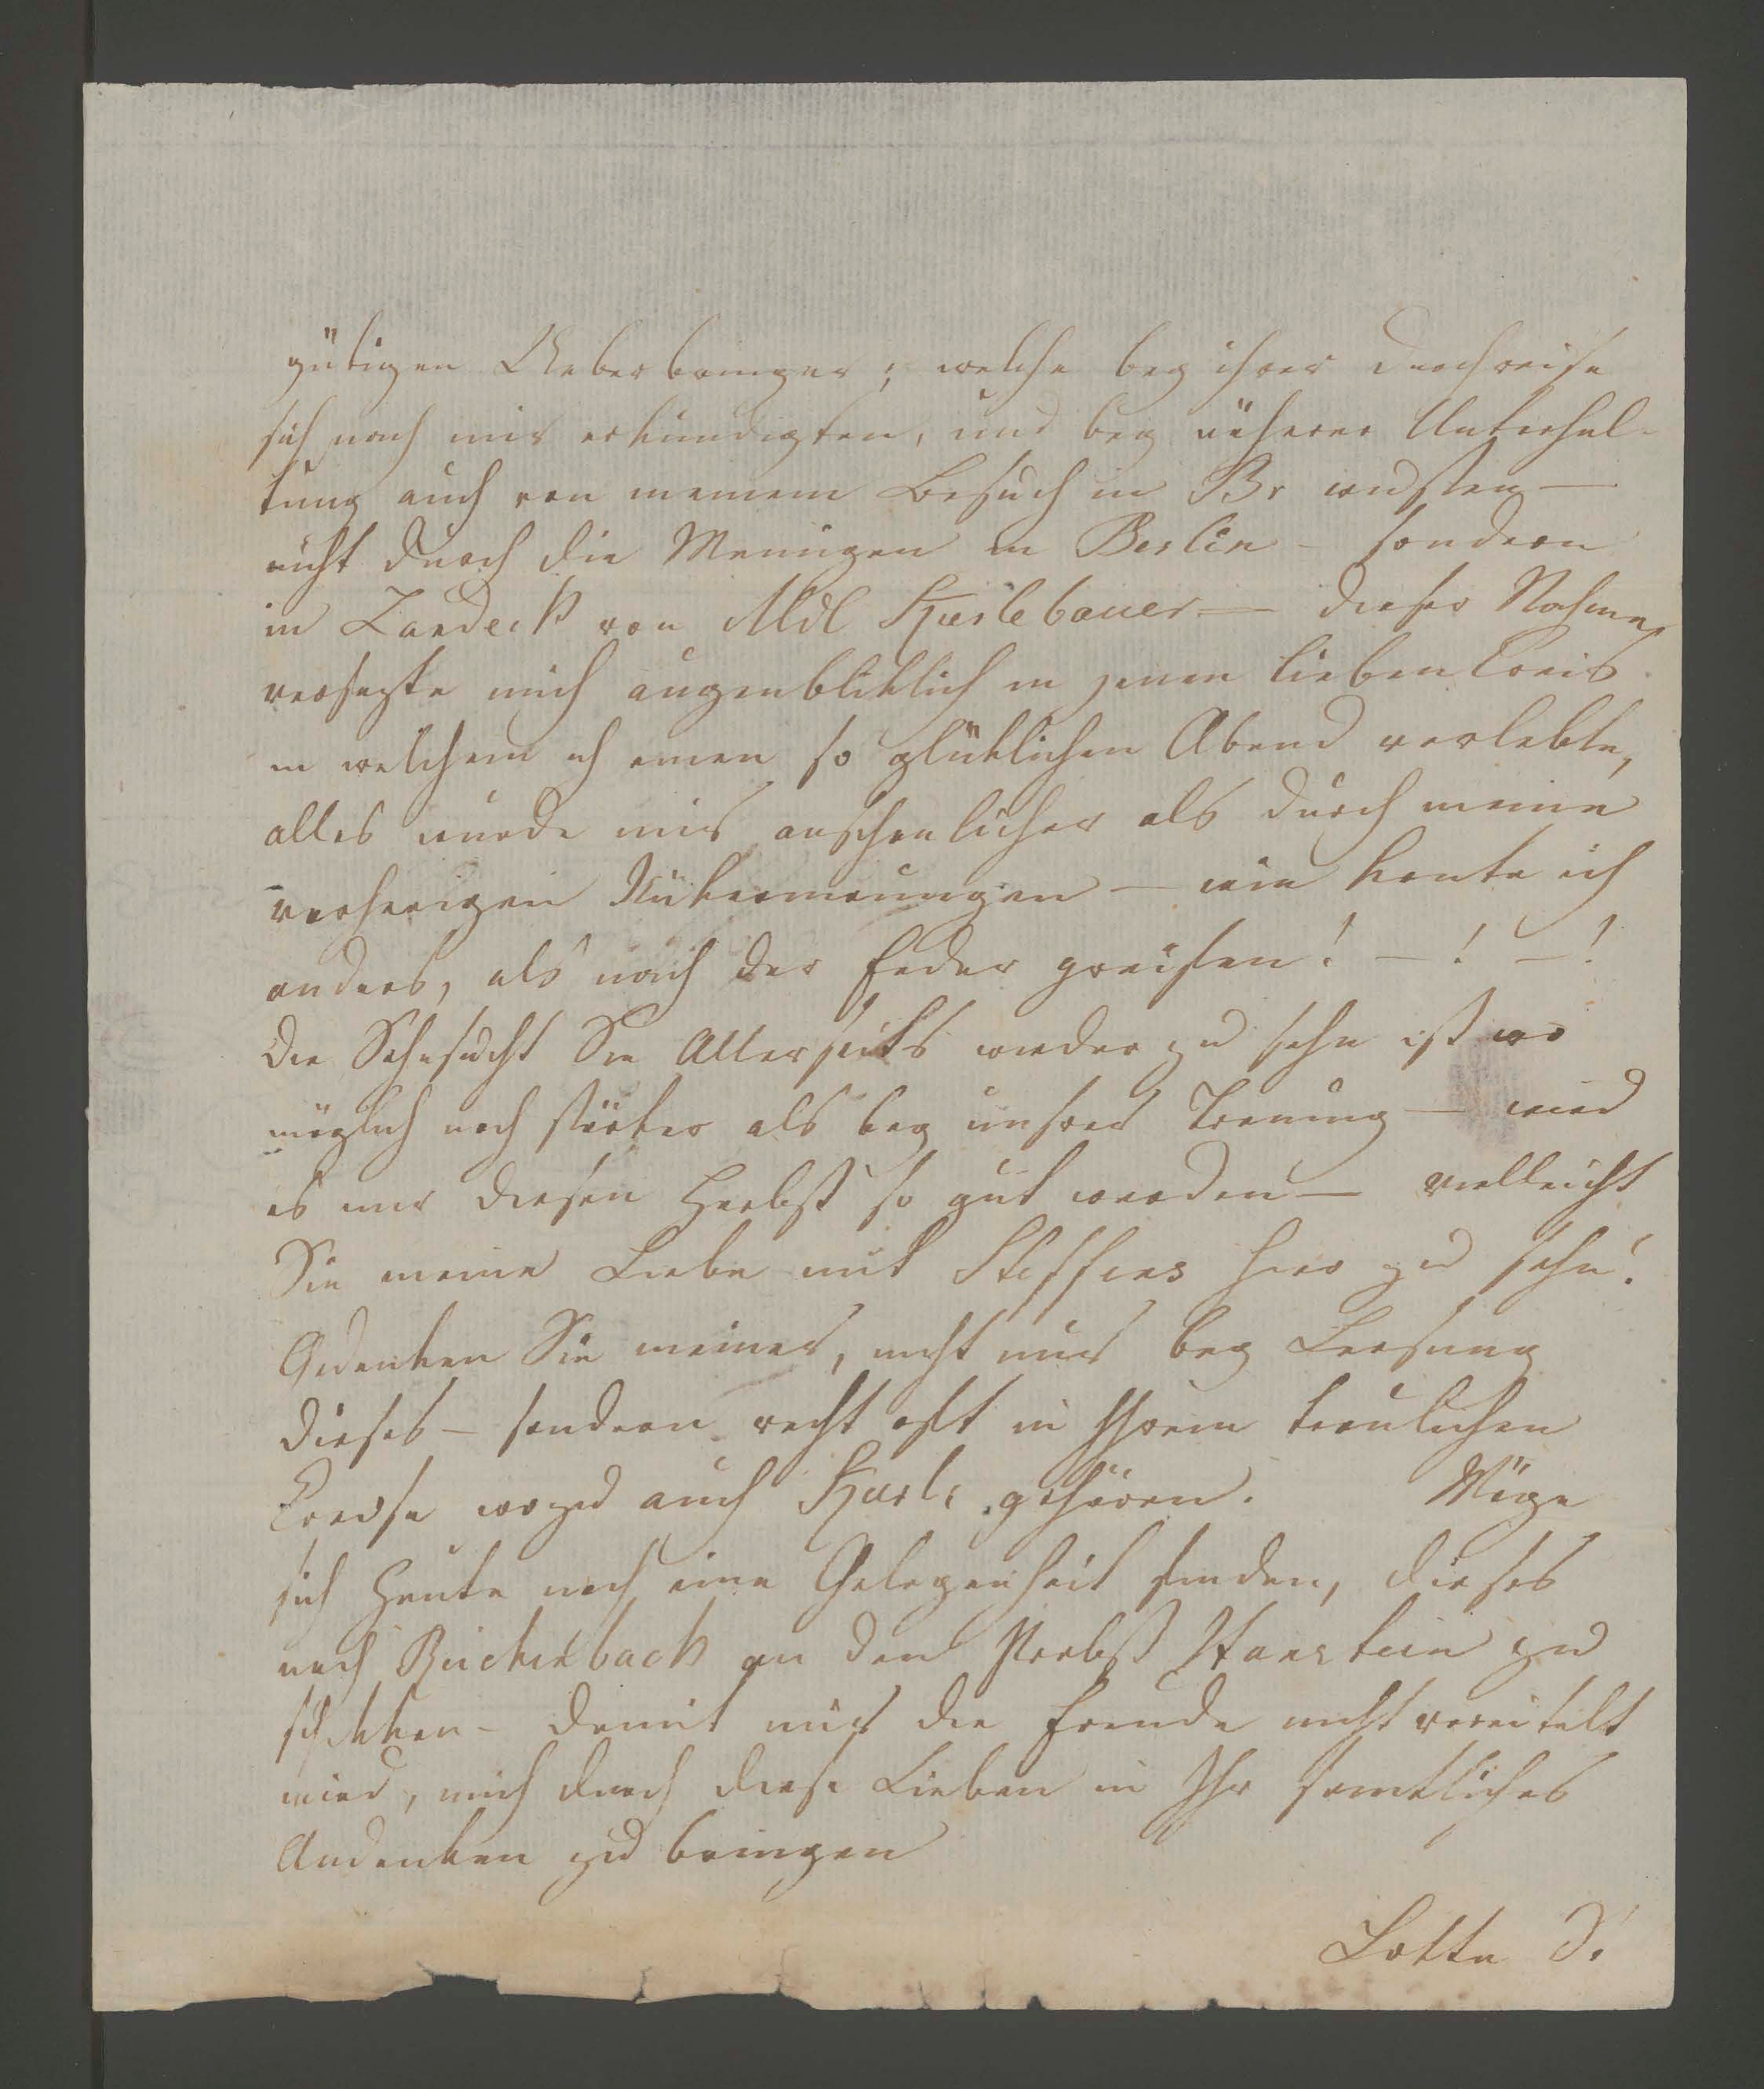 gütigen Ueberbringer; welche bey ihrer Durchreise
sich nach mir erkundigten, und bey näherer Unterhal-
tung auch von meinem Besuch in Br wusten —
nicht durch die Meinigen in Berlin - sondern
in Landeck von Mdl Kuhlebauer — dieser Nahme
versezte mich augenbliklich in jenen lieben Creis
in welchem ich einen so glüklichen Abend verlebte,
alles wurde mir anschaulicher als durch meine
vorherigen Rükerinnrungen — wie konte ich
anders, als nach der Feder greifen! — ! — !
Die Sehnsucht Sie Allerseits wieder zu sehn ist wo
möglich noch stärker als bey unsrer Trennung — wird
es mir diesen Herbst so gut werden — vielleicht
Sie meine Liebe mit Steffens hier zu sehn!
Gedenken Sie meiner, nicht nur bey Leesung
dieses — sondern recht oft in Ihrem traulichen
Creise wozu auch gehören. Möge
sich heute noch eine Gelegenheit finden, dieses
nach Reichenbach an den Probst Hanstein zu
schikken - damit mir die Freude nicht vereitelt
wird, mich durch diese Lieben in Ihr sämtliches
Andenken zu bringen
Lotte